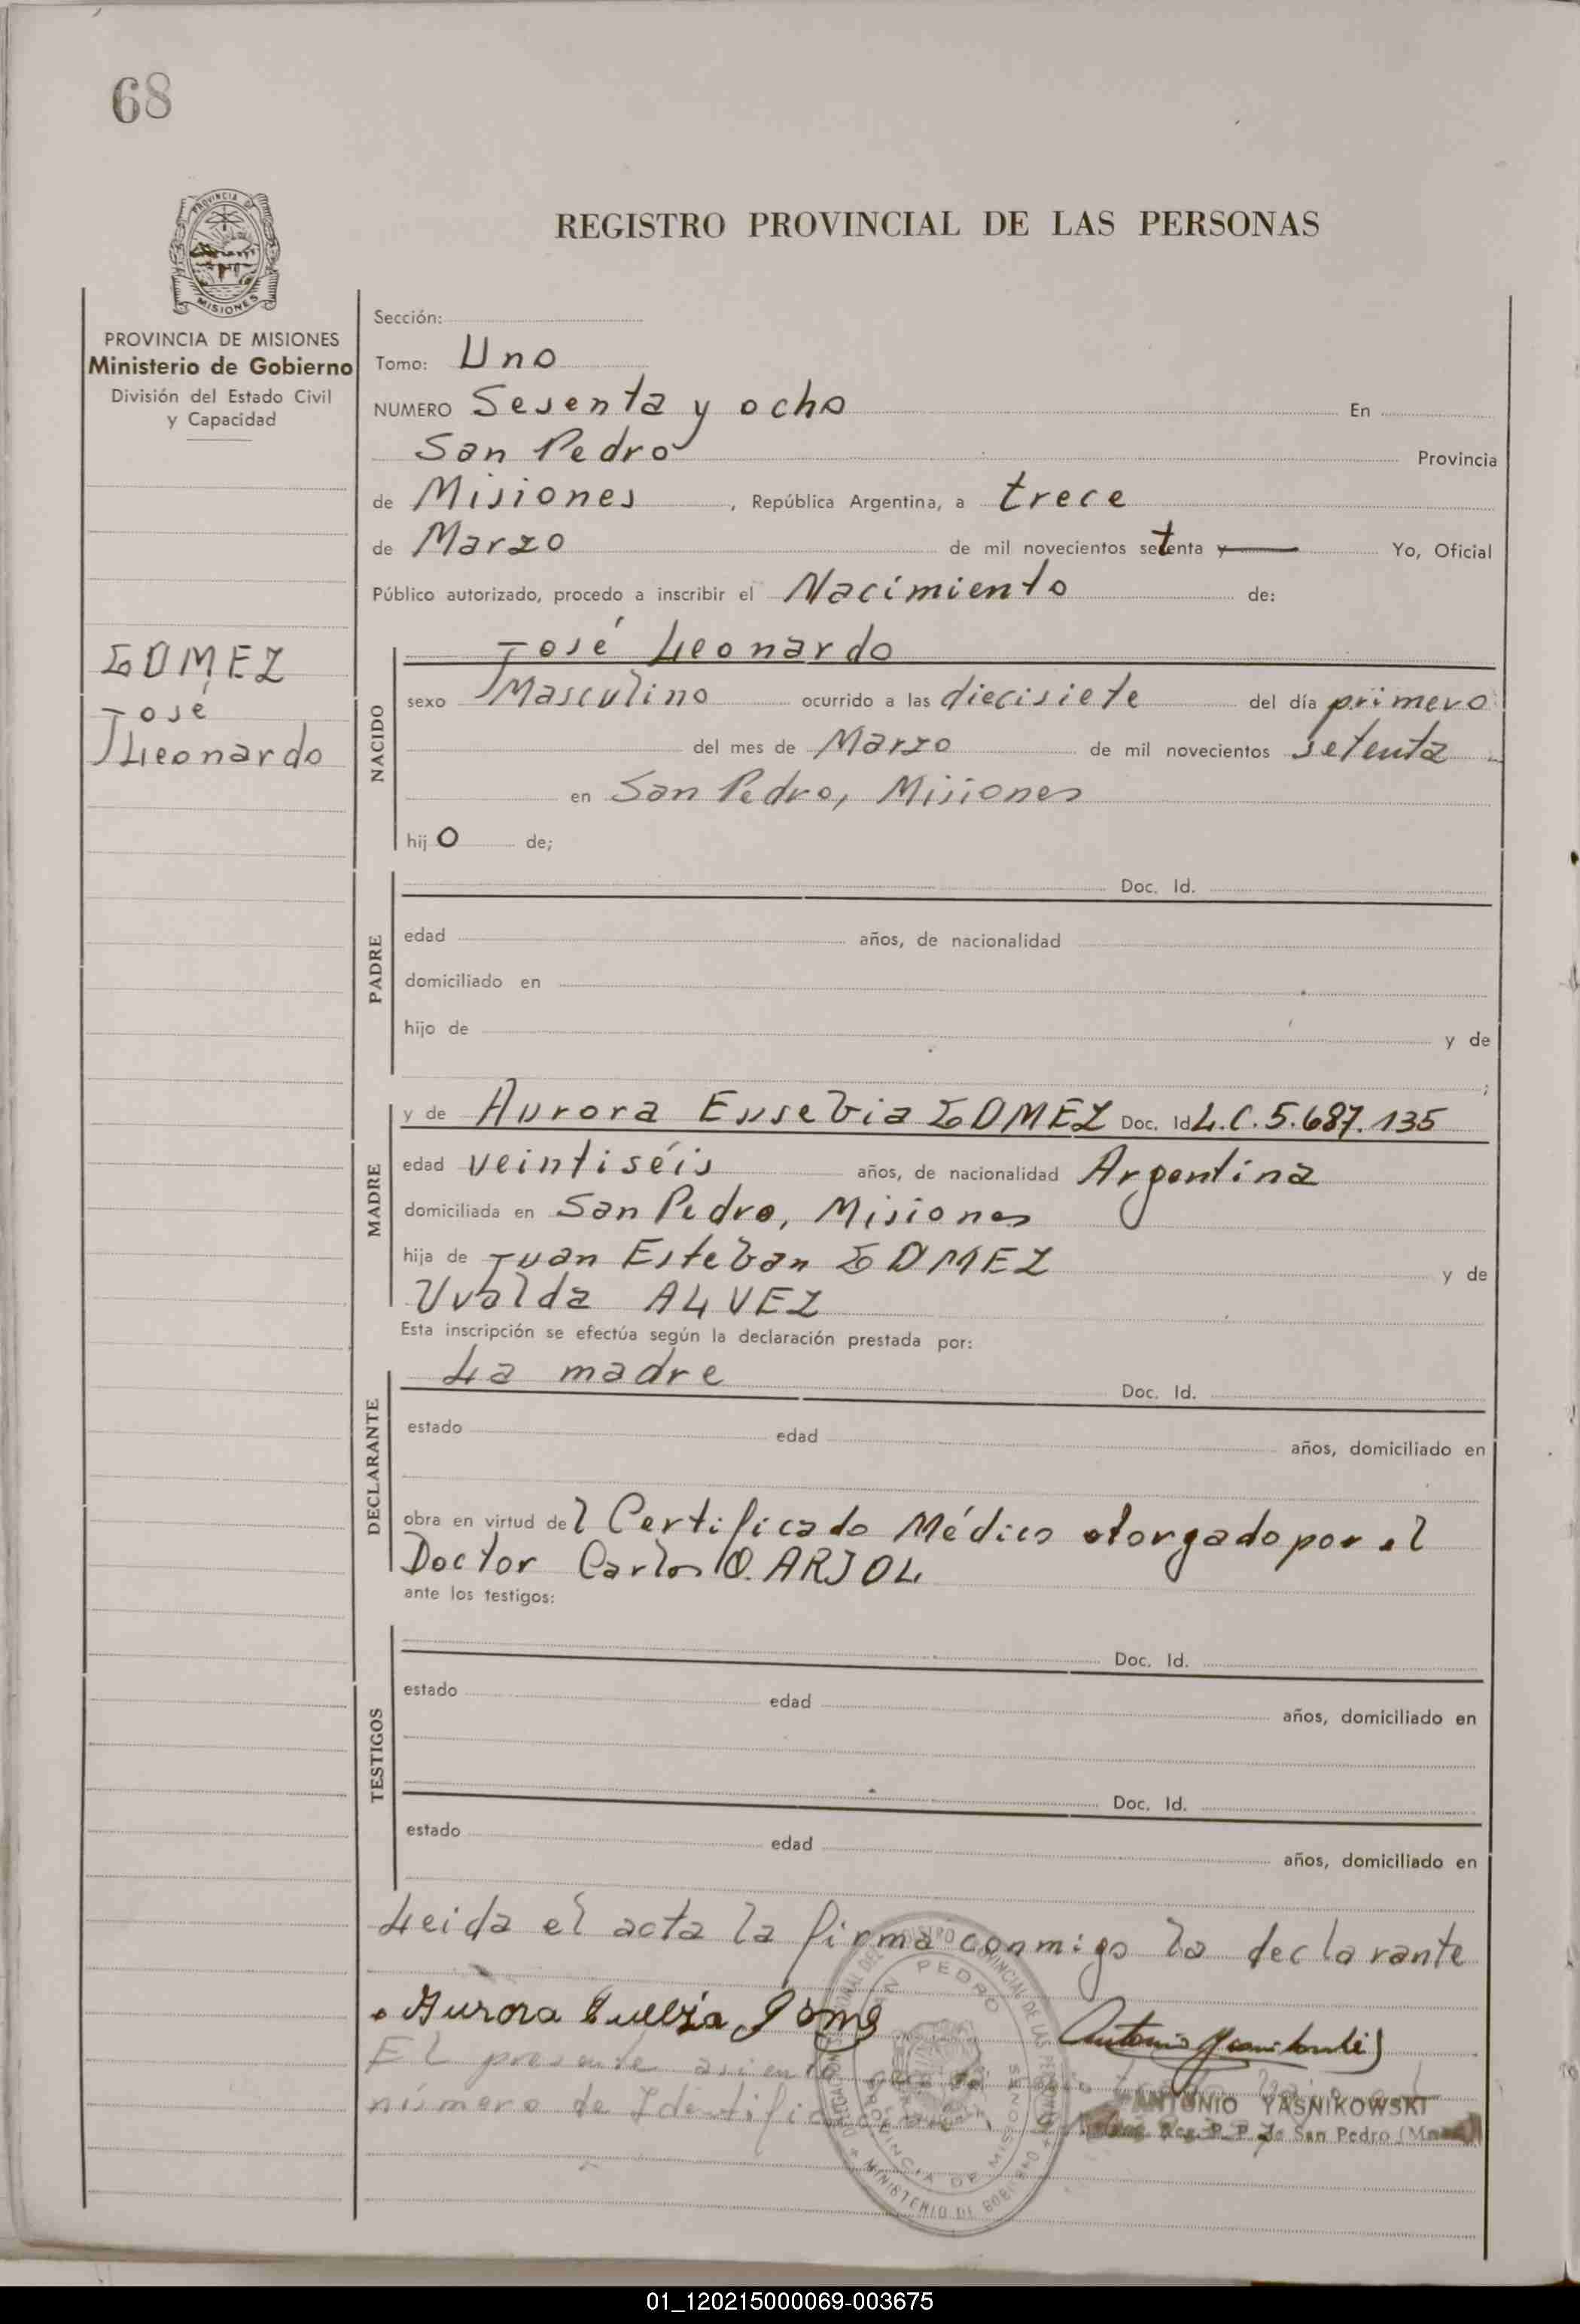 68
PROVINCIA DE
MISIONES
REGISTRO PROVINCIAL DE LAS PERSONAS
PROVINCIA DE MISIONES
Ministerio de Gobierno
División del Estado Civil
y Capacidad
GOMEZ
José
Leonardo
Sección:
Tomo: Uno
NUMERO Sesenta y ocho En
San Pedro Provincia
de Misiones, República Argentina, a trece
de Marzo de mil novecientos setenta y Yo, Oficial
Público autorizado, procedo a inscribir el Nacimiento de:
NACIDO
José Leonardo
sexo Masculino ocurrido a las diecisiete del día primero
del mes de Marzo de mil novecientos setenta
en San Pedro, Misiones
hijo de;
PADRE
Doc. Id.
edad años, de nacionalidad
domiciliado en
hijo de y de
;
MADRE
y de Aurora Eusebia GOMEZ Doc. Id L.C. 5.687.135
edad veintiséis años, de nacionalidad Argentina
domiciliada en San Pedro, Misiones
hija de Juan Esteban GOMEZ y de
Uvalda ALVEZ
Esta inscripción se efectúa según la declaración prestada por:
DECLARANTE
La madre Doc. Id.
estado edad años, domiciliado en
obra en virtud del Certificado Médico otorgado por el
Doctor Carlos O. ARJOL
ante los testigos:
TESTIGOS
Doc. Id.
estado edad años, domiciliado en
Doc. Id.
estado edad años, domiciliado en
Leida el acta la firma conmigo la declarante
Aurora Eusebia Gomez
El presente asiento
número de
SAN PEDRO
PROVINCIA DE MISIONES
MINISTERIO DE GOBIERNO
ANTONIO YASNIKOWSKI
Reg. P. P. de San Pedro
01_120215000069-003675